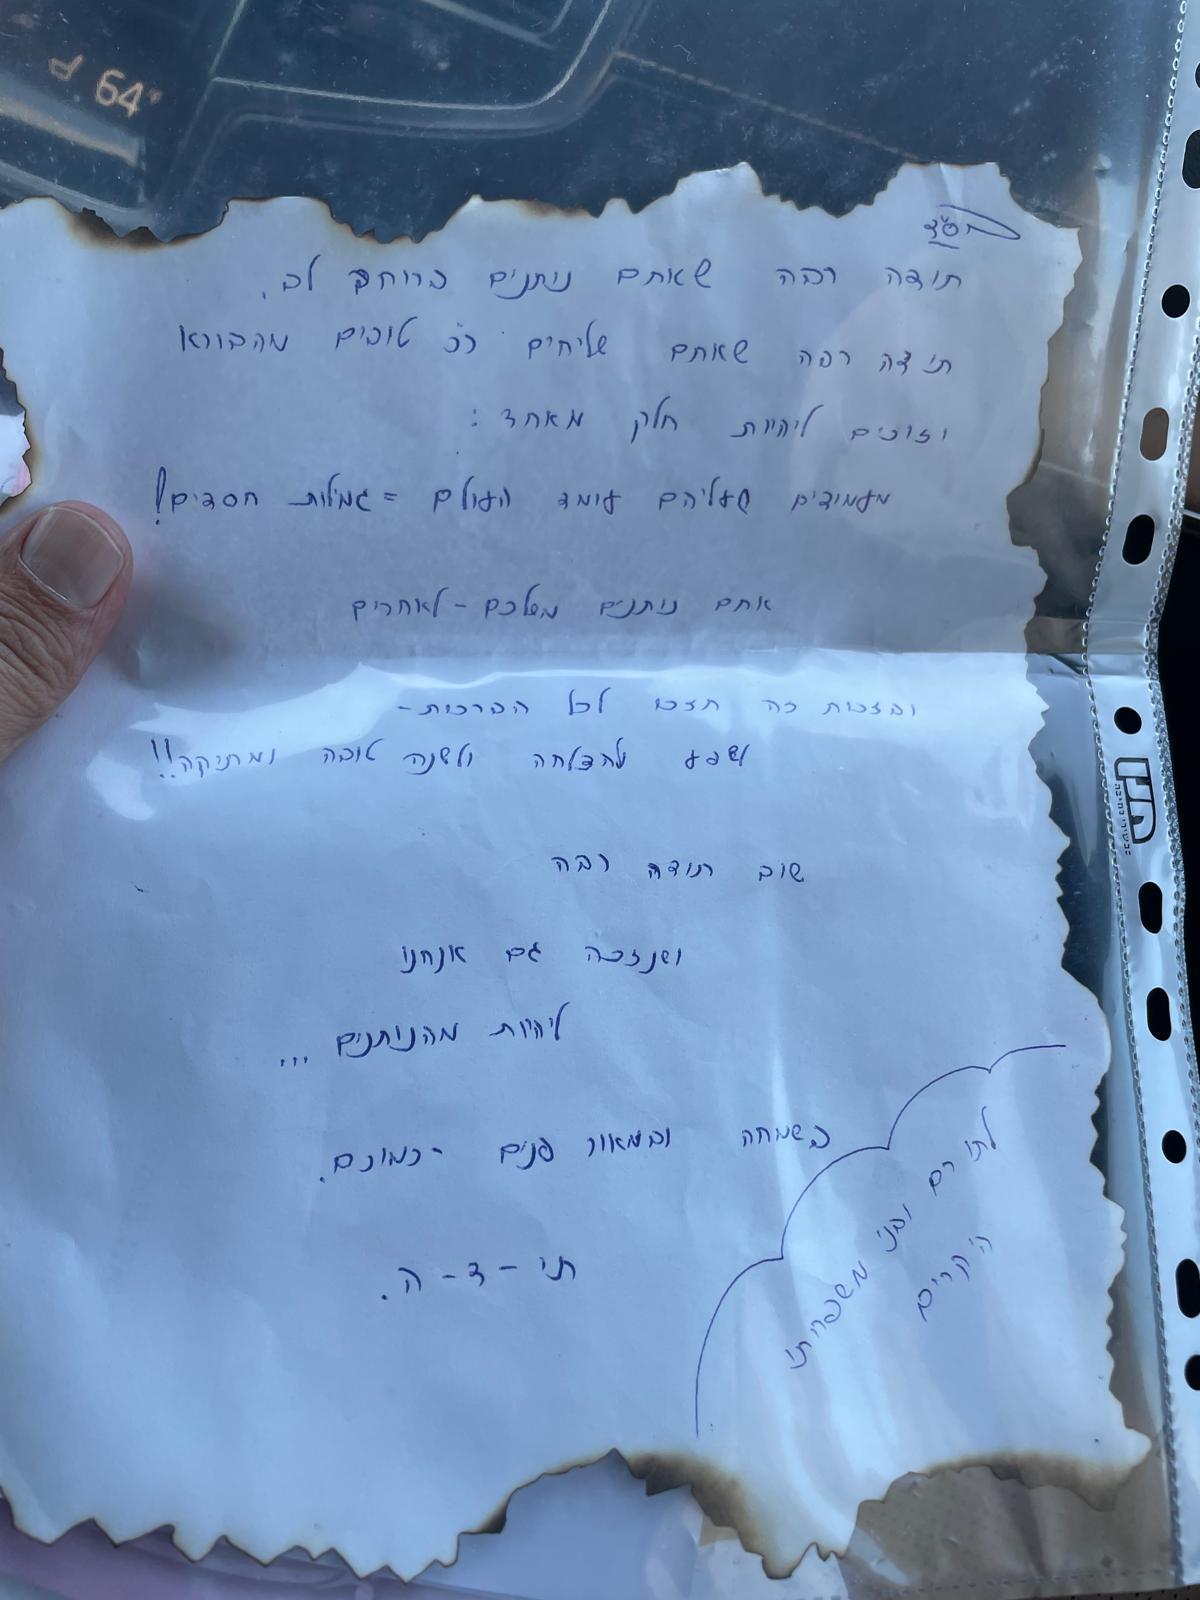 בס"ד
תודה רבה שאתם נותנים ברוחב לב.
תודה רבה שאתם שליחים כ"כ טובים מהבורא
וזוכים להיות חלק מאחד:
מעמודים שעליהם עומד העולם = גמילות חסדים!
אתם נותנים משלכם - לאחרים
ובזכות כה תזכו לכל הברכות-
שפע להצלחה ולשנה טובה ומתיקה!!
שוב תודה רבה
ושנזכה גם אנחנו
להיות מהנותנים ...
בשמחה ובמאור פנים - כמוכם.
תו - ד - ה.
ובני משפחתו
היקרים